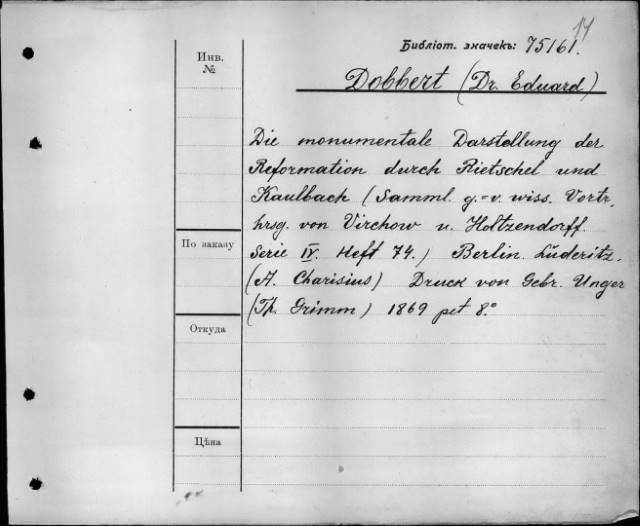 14
Библіот. значекъ: 75161.
Инв.
№
Dobbert (Dr. Eduard)
Die monumentale Darstellung der
Reformation durch Rietschel und
Kaulbach (Samml. g.=v. wiss. Vortr,
hrsg. von Virchow u. Holtzendorff.
Serie IV. Heft 74.) Berlin. Lüderitz.
(A. Charisius) Druck von Gebr. Unger
(Th. Grimm) 1869 pet 8.°
По заказу
Откуда
Цѣна